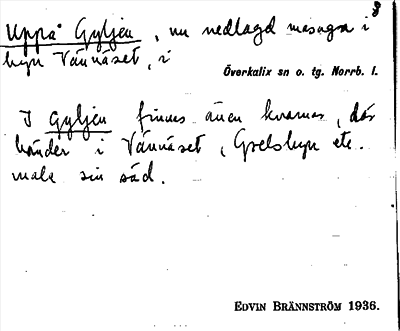 3
Uppå Gyljen, nu nedlagd mesaga i
byn Vännäset, i
Överkalix sn o. tg. Norrb. l.
I Gyljen finnes även kvarnar, där
bönder i Vännäset, Grelsbyn etc.
mala sin säd.
EDVIN BRÄNNSTRÖM 1936.